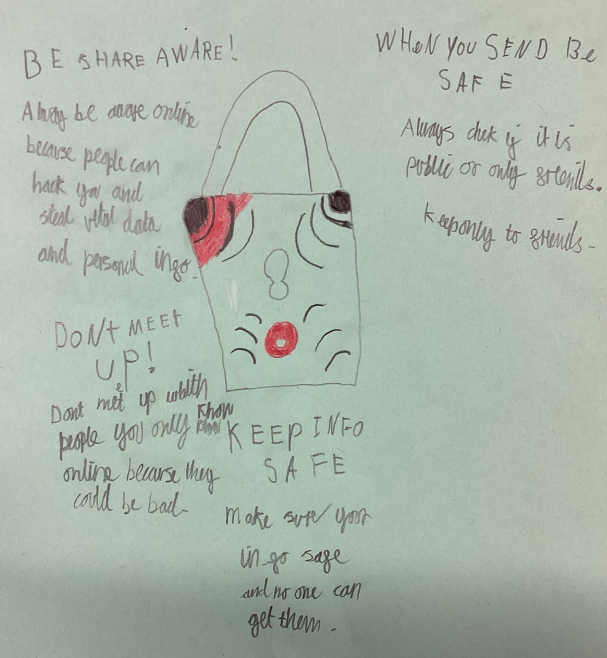 BE SHARE AWARE!
Alway be aware online
because people can
hack you and
steal vital data
and personal info.
DON'T MEET
UP!
Dont met up whith
people you only know
online because they
could be bad.
KEEP INFO
SAFE
make sure your
info safe
and no one can
get them.
WHeN YOU SEND Be
SAFE
Always chek if it is
public or only friends.
Keep only to friends.